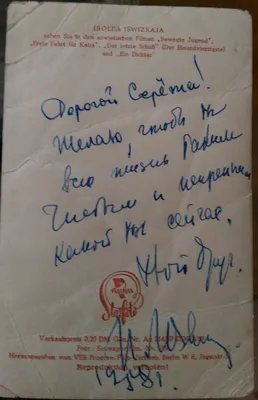 ISOLDA ISWIZKAJA
sahen Sie in den sowjetischen Filmen „Bewegte Jugend",
„Freie Fahrt für Katja", „Der letzte Schuß" (Der Einundvierzigste)
und „Ein Dichter"
Дорогой Серёжа!
Желаю, чтобы ты
всю жизнь таким
чистым и искренним
какой ты сейчас.
Твой друг.
Verkaufspreis 0,20 DM
Foto:
Herausgegeben vom VEB Berlin W 8,
Reproduktion verboten!